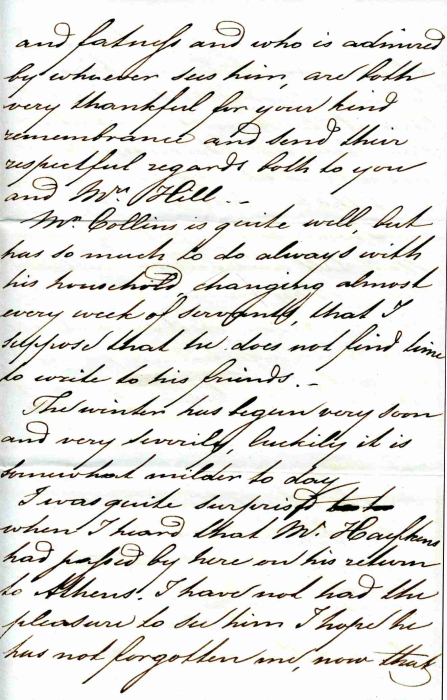 and fatness and who is admired
by whoever sees him, are both
very thankful for your kind
remembrance and send their
respectful regards both to you
and Mrs. Hill. -
Mr. Collins is quite well, but
has so much to do always with
his household, changing almost
every week of servants, that I
suppose that he does not find time
to write to his friends. -
The winter has begun very soon
and very severily, luckily it is
somewhat milder to day
I was quite surprised
when I heard that Mr.
had passed by here on his return
to Athens. I have not had the
pleasure to see him I hope he
has not forgotten me, now that